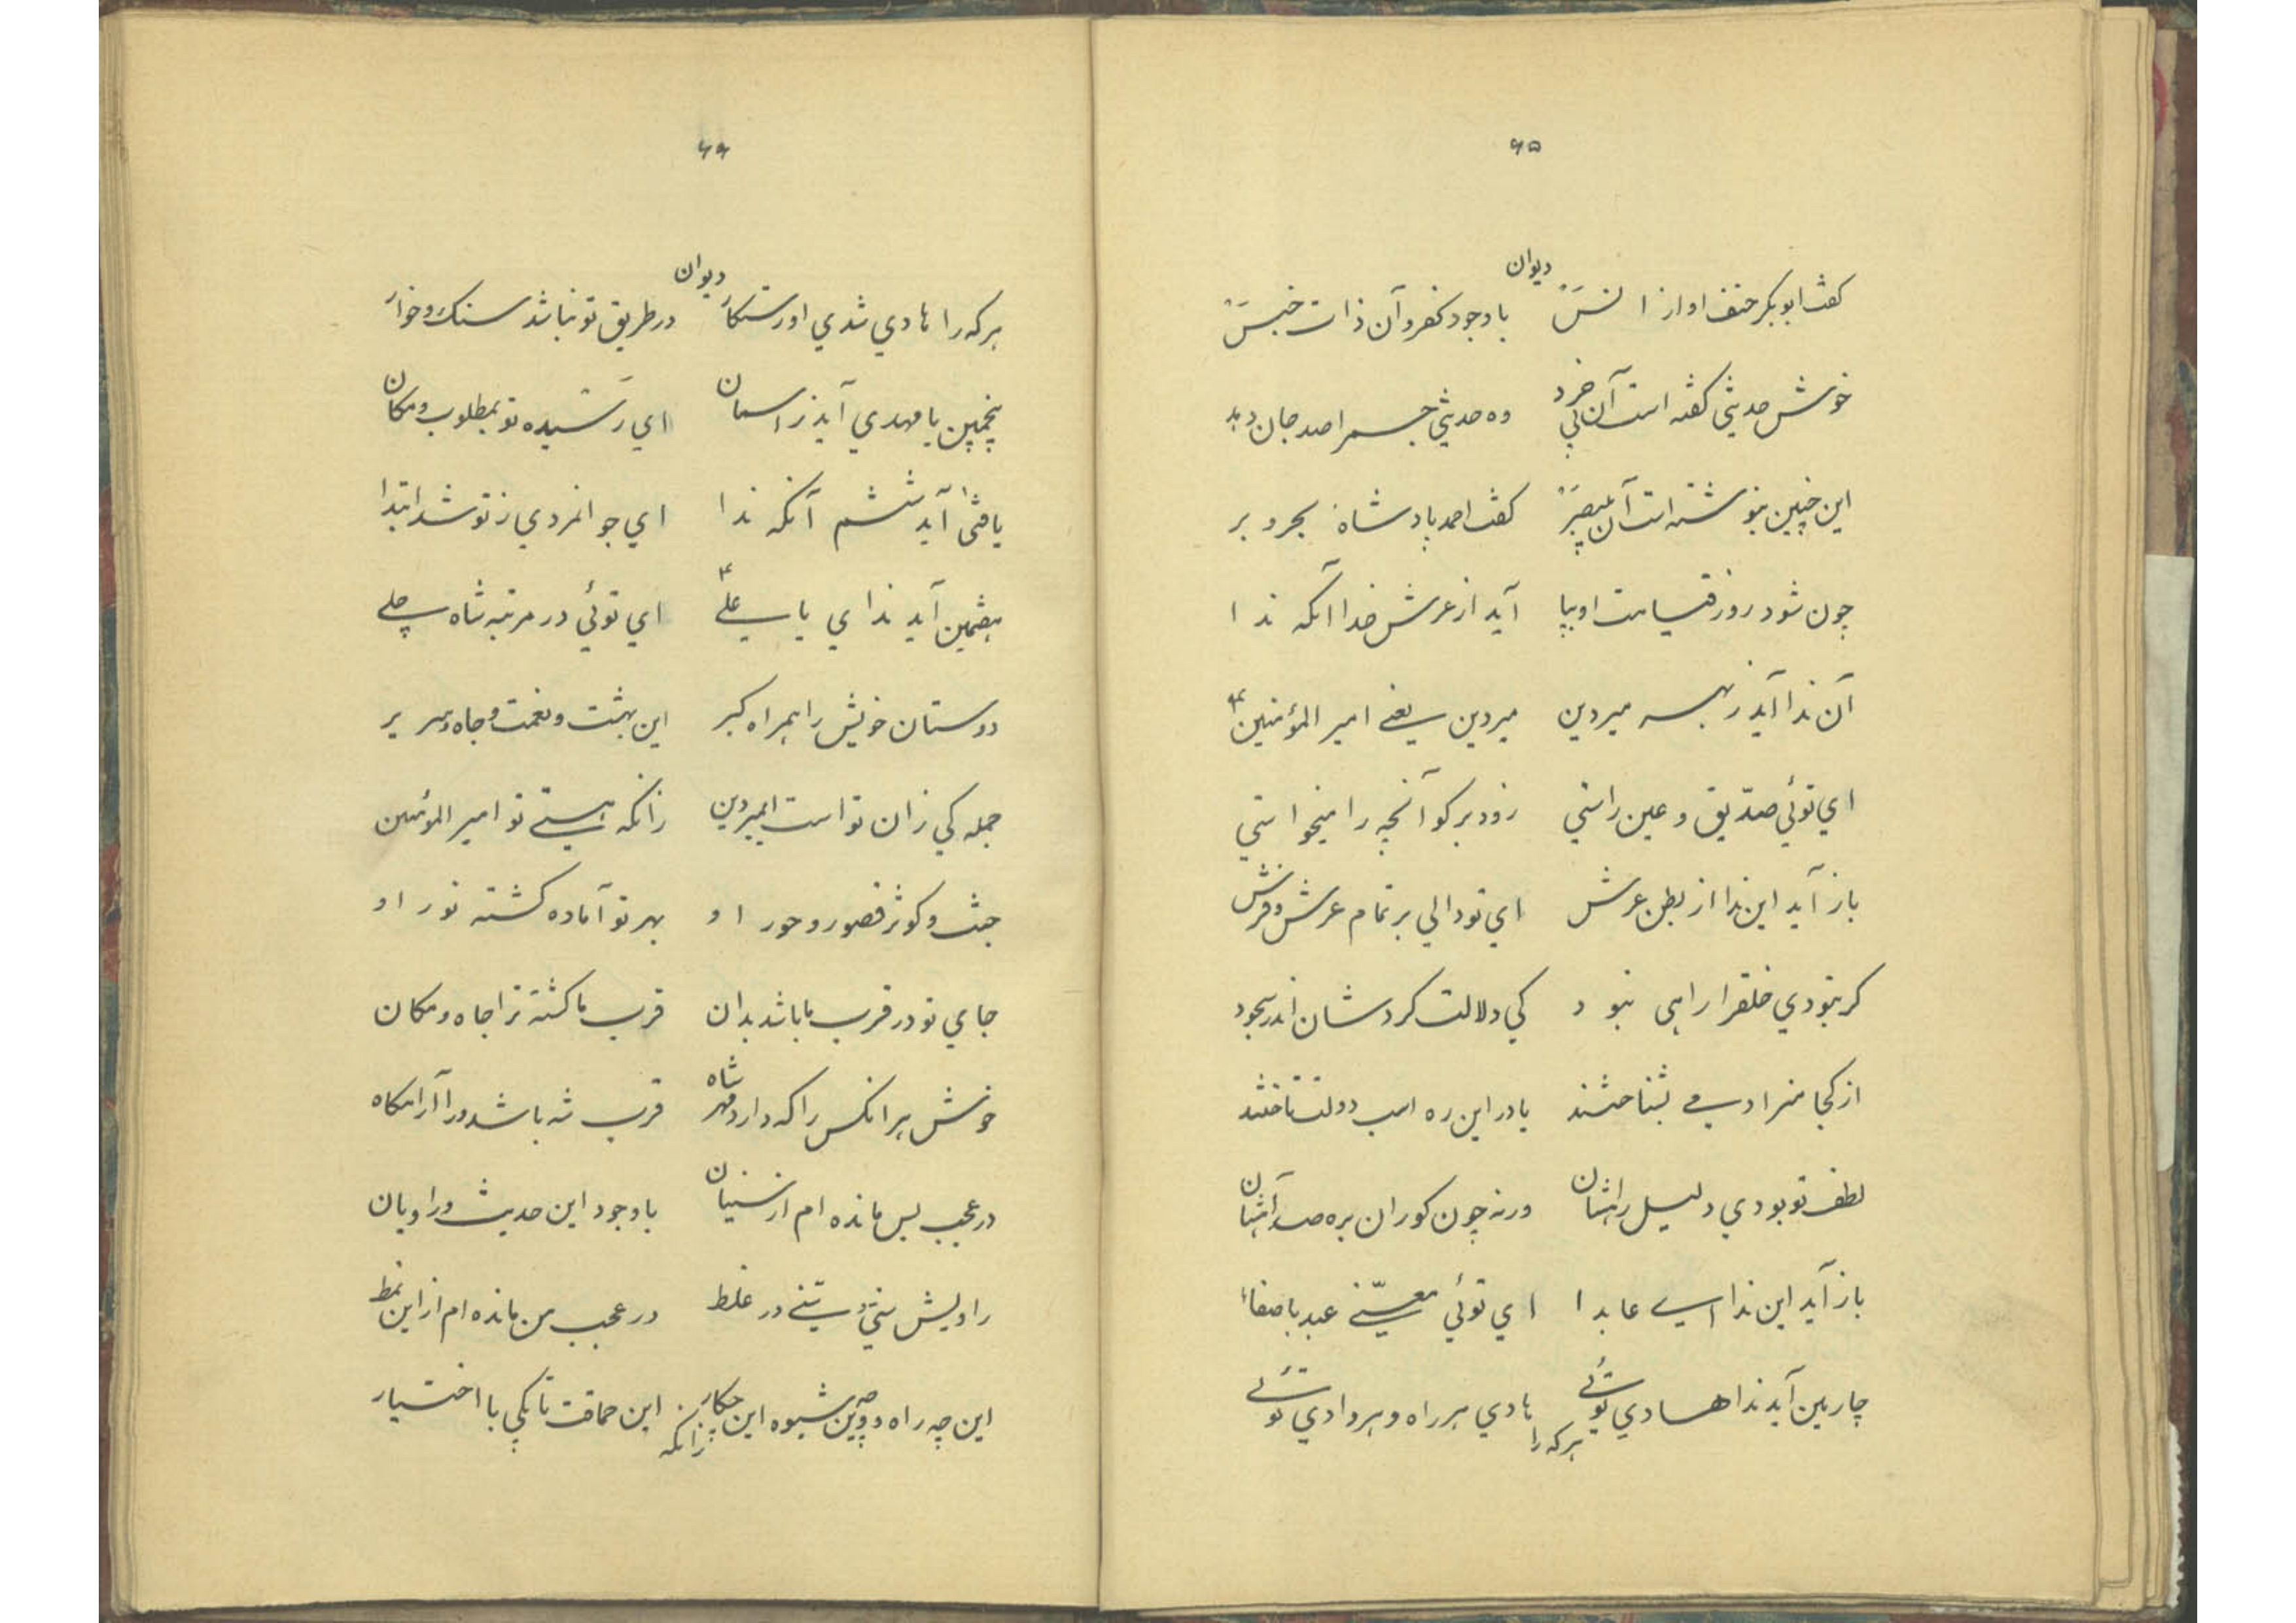 ۶۵
دیوان
گفت ابوبکر حنف او از انس با وجود کفر و آن ذات خبس
خوش حدیثی گفته است آن بی خرد وه حدیثی جسم را صد جان دهد
این چنین بنوشته است آن بی بصر گفت احمد پادشاه بحر و بر
چون شود روز قیامت او بپا آید از عرش خدا آنکه ندا
آن ندا آید ز بهر میر دین میر دین یعنی امیر المؤمنین
ای توئی صدّیق و عین راستی زود برگو آنچه را میخواستی
باز آید این ندا از بطن عرش ای تو والی بر تمام عرش و فرش
گر نبودی خلق را راهی نبود کی دلالت کردشان اندر سجود
از کجا منزادی بشناختند یا در این ره اسب دولت تاختند
لطف تو بودی دلیل راهشان ورنه چون کوران بره صد آهشان
باز آید این ندا سی عابدا ای توئی معنیّ عبد با صفا
چارمین آید ندا هادی توئی هادی هر راه و هر وادی توئی
هر که را
۶۶
دیوان
هر که را هادی شدی او رستکار در طریق تو نباشد سنک و خار
پنجمین یا مهدی آید ز اسمان ای رسیده تو بمطلوب و مکان
یا فتیٰ آید ششم آنکه ندا ای جوانمردی ز تو شد ابتدا
هفتمین آید ندای یا علی ای توئی در مرتبه شاه جلی
دوستان خویش را همراه گیر این بهشت و نعمت و جاه و سریر
جمله کی زان تو است ای میر دین زانکه هستی تو امیر المؤمنین
جنت و کوثر قصور و حور او بهر تو آماده کشته نور او
جای تو در قرب ما باشد بدان قرب ما کشته ترا جاه و مکان
خوش هر انکس را که دارد مهر شاه قرب شه باشد ورا آرامکاه
در عجب بس مانده ام از سنیان با وجود این حدیث و راویان
راویش سنی و سنی در غلط در عجب من مانده ام از این نمط
این چه راه و وین چه شیوه این چکار این حماقت تا بکی با اختیار
زانکه